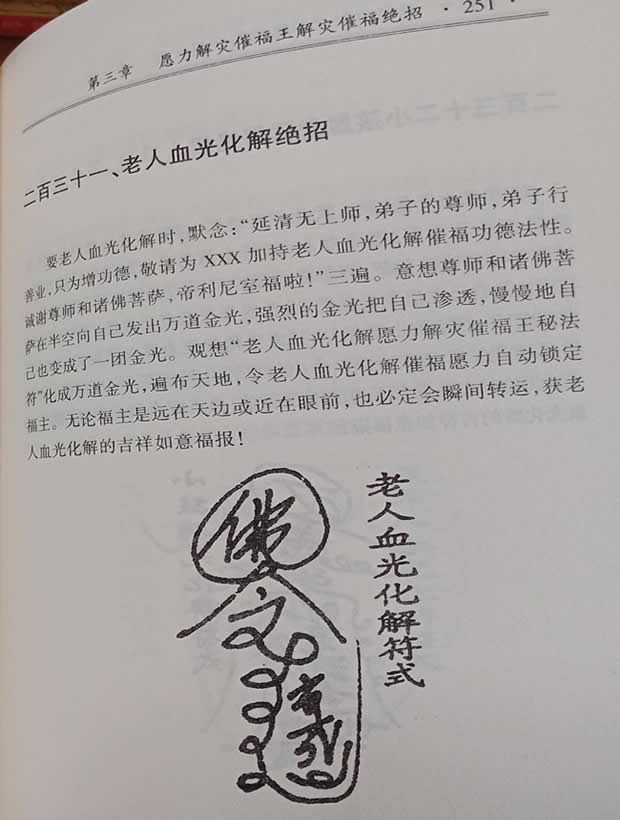 第三章 愿力解灾催福王解灾催福绝招 · 251 ·
二百三十一、老人血光化解绝招
要老人血光化解时，默念：“延清无上师，弟子的尊师，弟子行
善业，只为增功德，敬请为 XXX 加持老人血光化解催福功德法性。
诚谢尊师和诸佛菩萨，帝利尼室福啦！”三遍。意想尊师和诸佛菩
萨在半空向自己发出万道金光，强烈的金光把自己渗透，慢慢地自
己也变成了一团金光。观想“老人血光化解愿力解灾催福王秘法
符”化成万道金光，遍布天地，令老人血光化解催福愿力自动锁定
福主。无论福主是远在天边或近在眼前，也必定会瞬间转运，获老
人血光化解的吉祥如意福报！
老人血光化解符式
佛